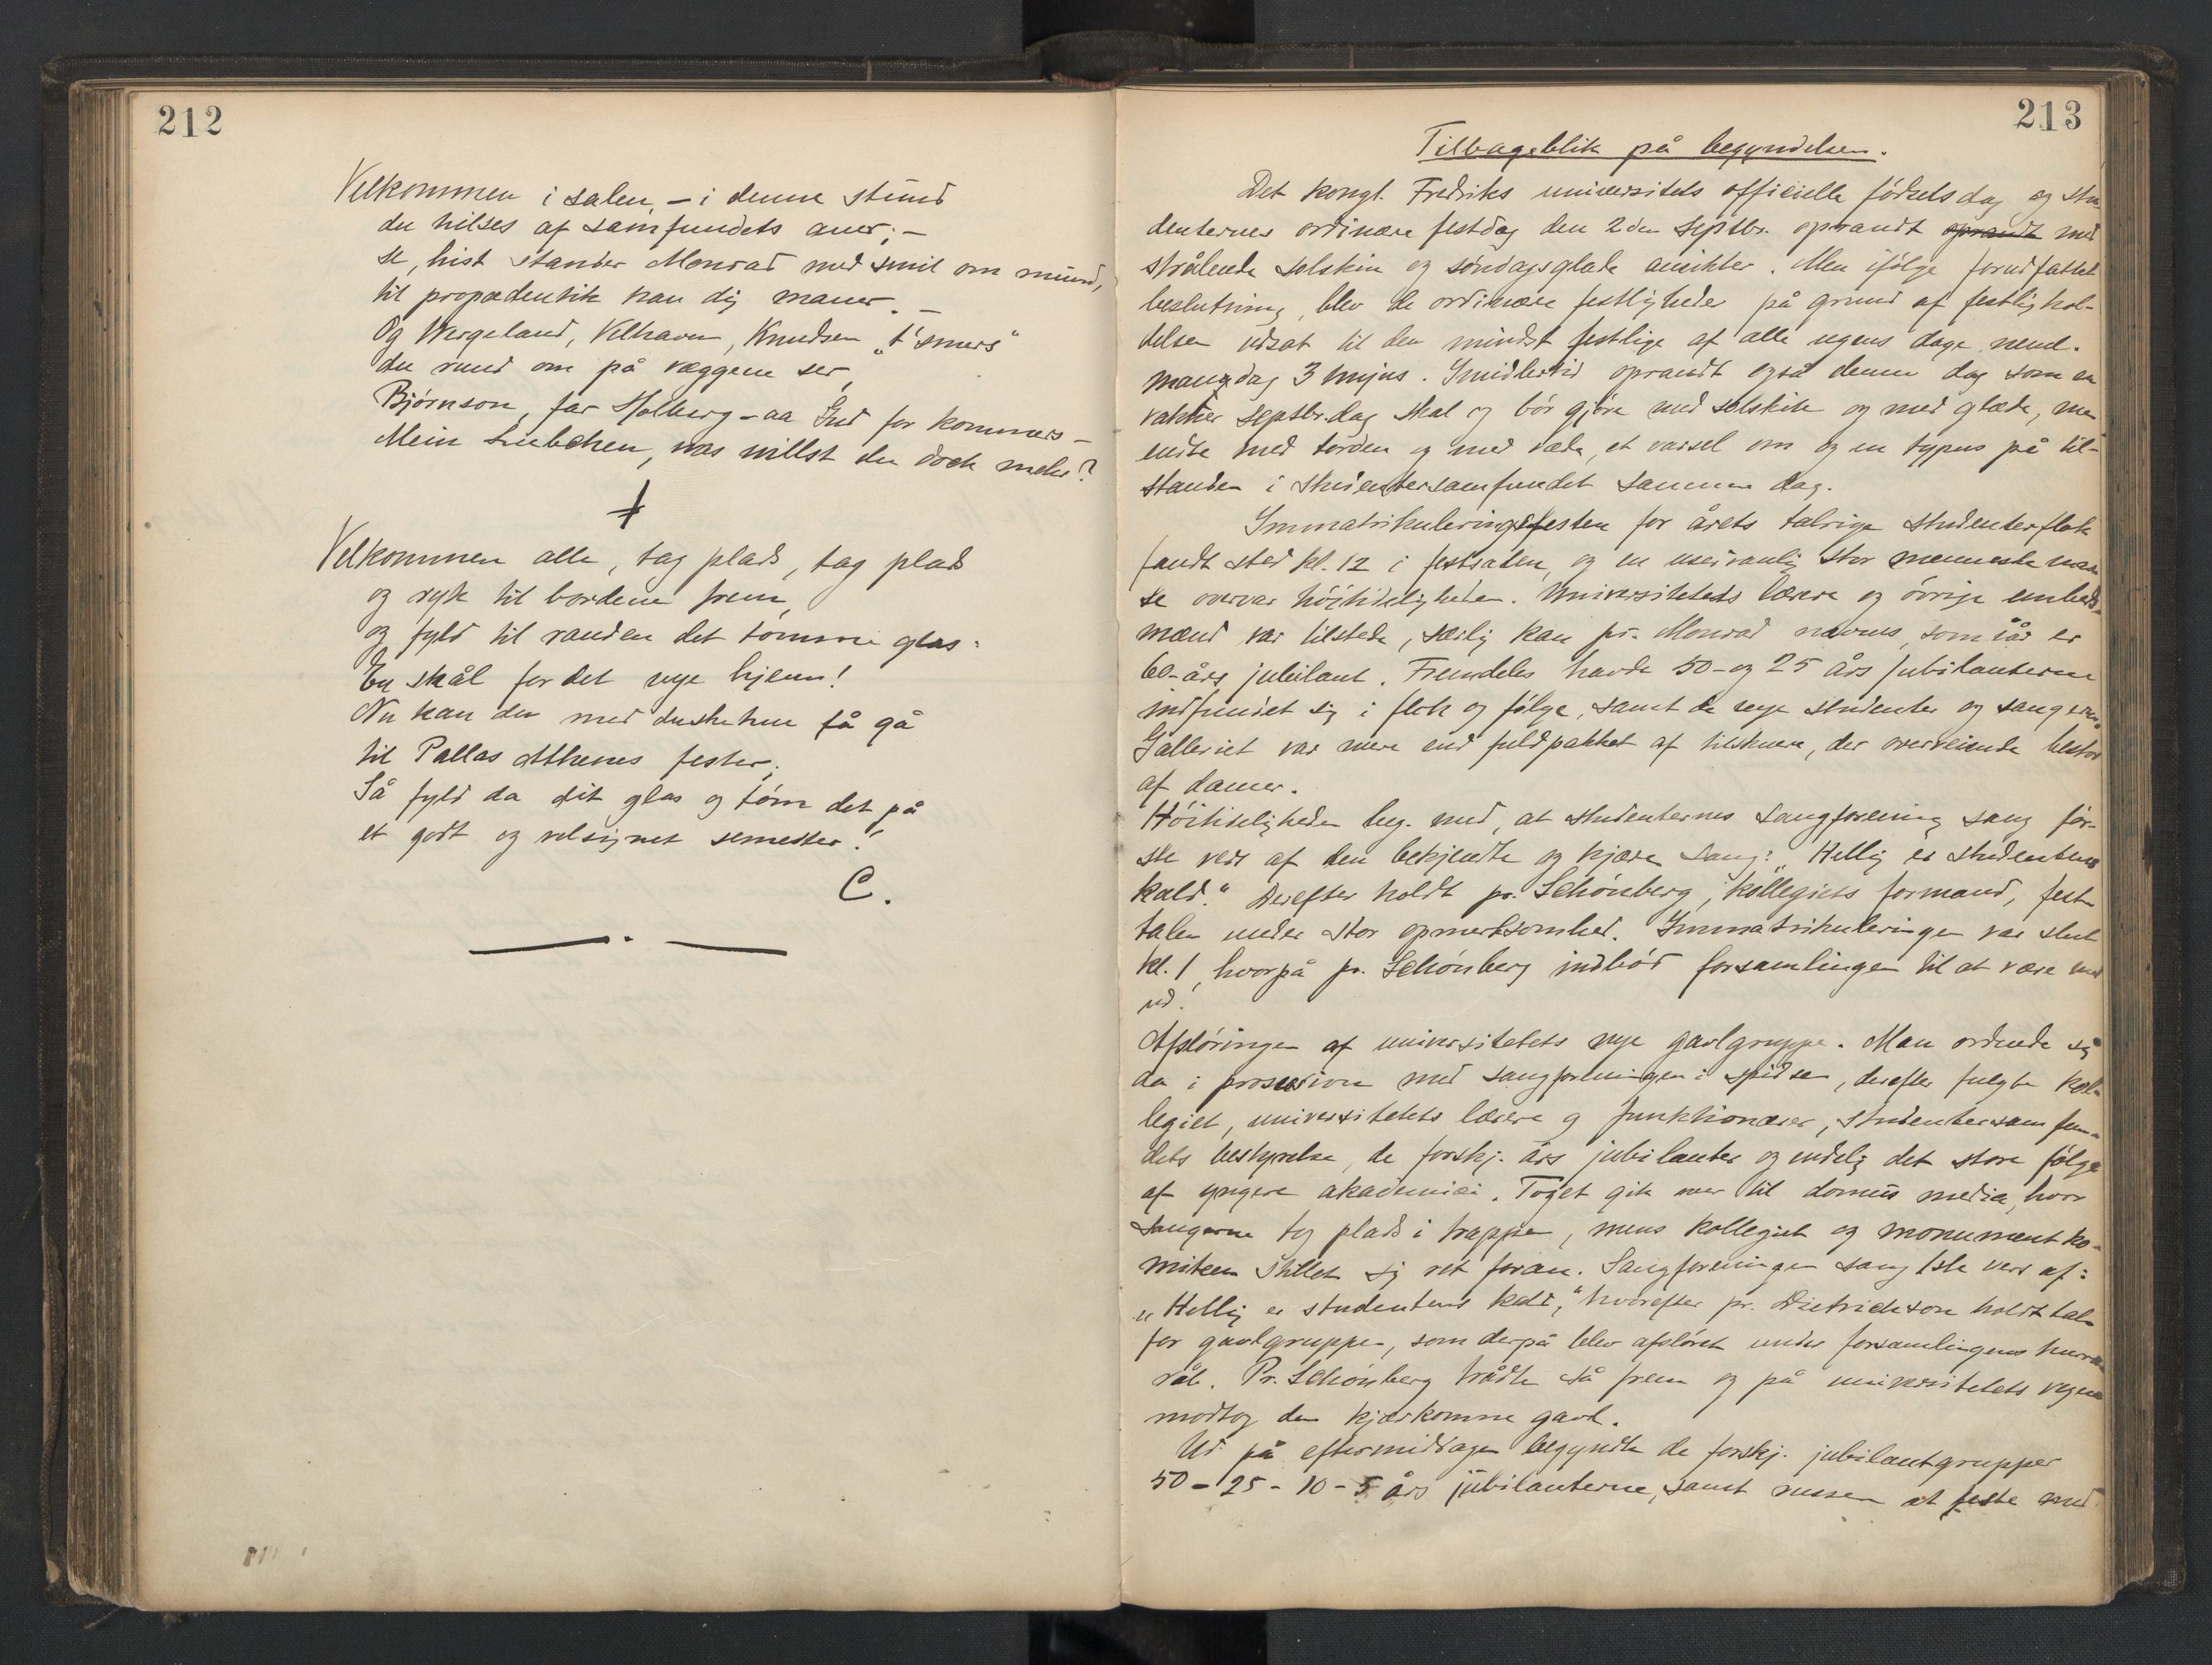 212
Velkommen i salen, – i denne stund
du hilses af samfundets aner; –
se, hist stander Monrad med smil om mund,
til propædeutik han dig maner. –
Og Wergeland, Velhaven, Knudsen „t'smers"
du rund om på væggene ser,
Bjørnson, far Holberg – aa Gud for kommers –
Mein Liebchen, was willst du doch mehr?
Velkommen alle, tag plads, tag plads
og ryk til bordene frem,
og fyld til randen det tomme glas:
En skål for det nye hjem!
Nu kan du med duskehue få gå
til Pallas Athenes fester;
Så fyld da dit glas og tøm det på
et godt og velsignet semester!
C.
213
Tilbageblik på begyndelsen.
Det kongl. Fredriks universitets officielle fødselsdag og stu
denternes ordinære festdag den 2den septbr. oprandt oprandt med
strålende solskin og søndagsglade ansikter. Men ifølge forudfattet
beslutning, blev de ordinære festligheder på grund af festlighol-
delsen udsat til den mindst festlige af alle ugens dage neml.
mandag 3 hujus. Imidlertid oprandt også denne dag som en
vakker septbr.dag skal og bør gjøre med solskin og med glæde, men
endte med torden og med væde, et varsel om og en typus på til-
standen i studentersamfundet samme dag.
Immatrikuleringsfesten for årets talrige studenterflok
fandt sted kl. 12 i festsalen, og en usedvanlig stor menneskemas
se overvar høitideligheden. Universitetets lærere og øvrige embeds-
mænd var tilstede, særlig kan pr. Monrad nævnes, som iår er
60-års jubilant. Fremdeles havde 50- og 25 års jubilanterne
indfundet sig i flok og følge, samt de nye studenter og sangerne.
Galleriet var mere end fuldpakket af tilskuere, der overveiende bestod
af damer.
Høitideligheden beg. med, at studenternes sangforening sang før-
ste vers af den bekjendte og kjære sang: „Hellig er studentens
kald." Derefter holdt pr. Schønberg, kollegiets formand, fest
talen under stor opmerksomhed. Immatrikuleringen var slut
kl. 1, hvorpå pr. Schønberg indbød forsamlingen til at være med
ved
Afsløringen af universitetets nye gavlgruppe. Man ordnede sig
da i prosession med sangforeningen i spidsen, derefter fulgte kol-
legiet, universitetets lærere og funktionærer, studentersamfun-
dets bestyrelse, de forskj. års jubilanter og endelig det store følge
af yngere akademici. Toget gik over til domus media, hvor
sangerne tog plads i trappen, mens kollegiet og monumentko-
miteen stillet sig ret foran. Sangforeningen sang 1ste vers af:
„Hellig er studentens kald," hvorefter pr. Dietrichson holdt tale
for gavlgruppen, som derpå blev afsløret under forsamlingens hurra
råb. Pr. Schønberg trådte så frem og på universitetets vegne
modtog den kjærkomne gave.
Ud på eftermiddagen begyndte de forskj. jubilantgrupper
50 - 25 - 10 - 5 års jubilanterne, samt russen at feste med